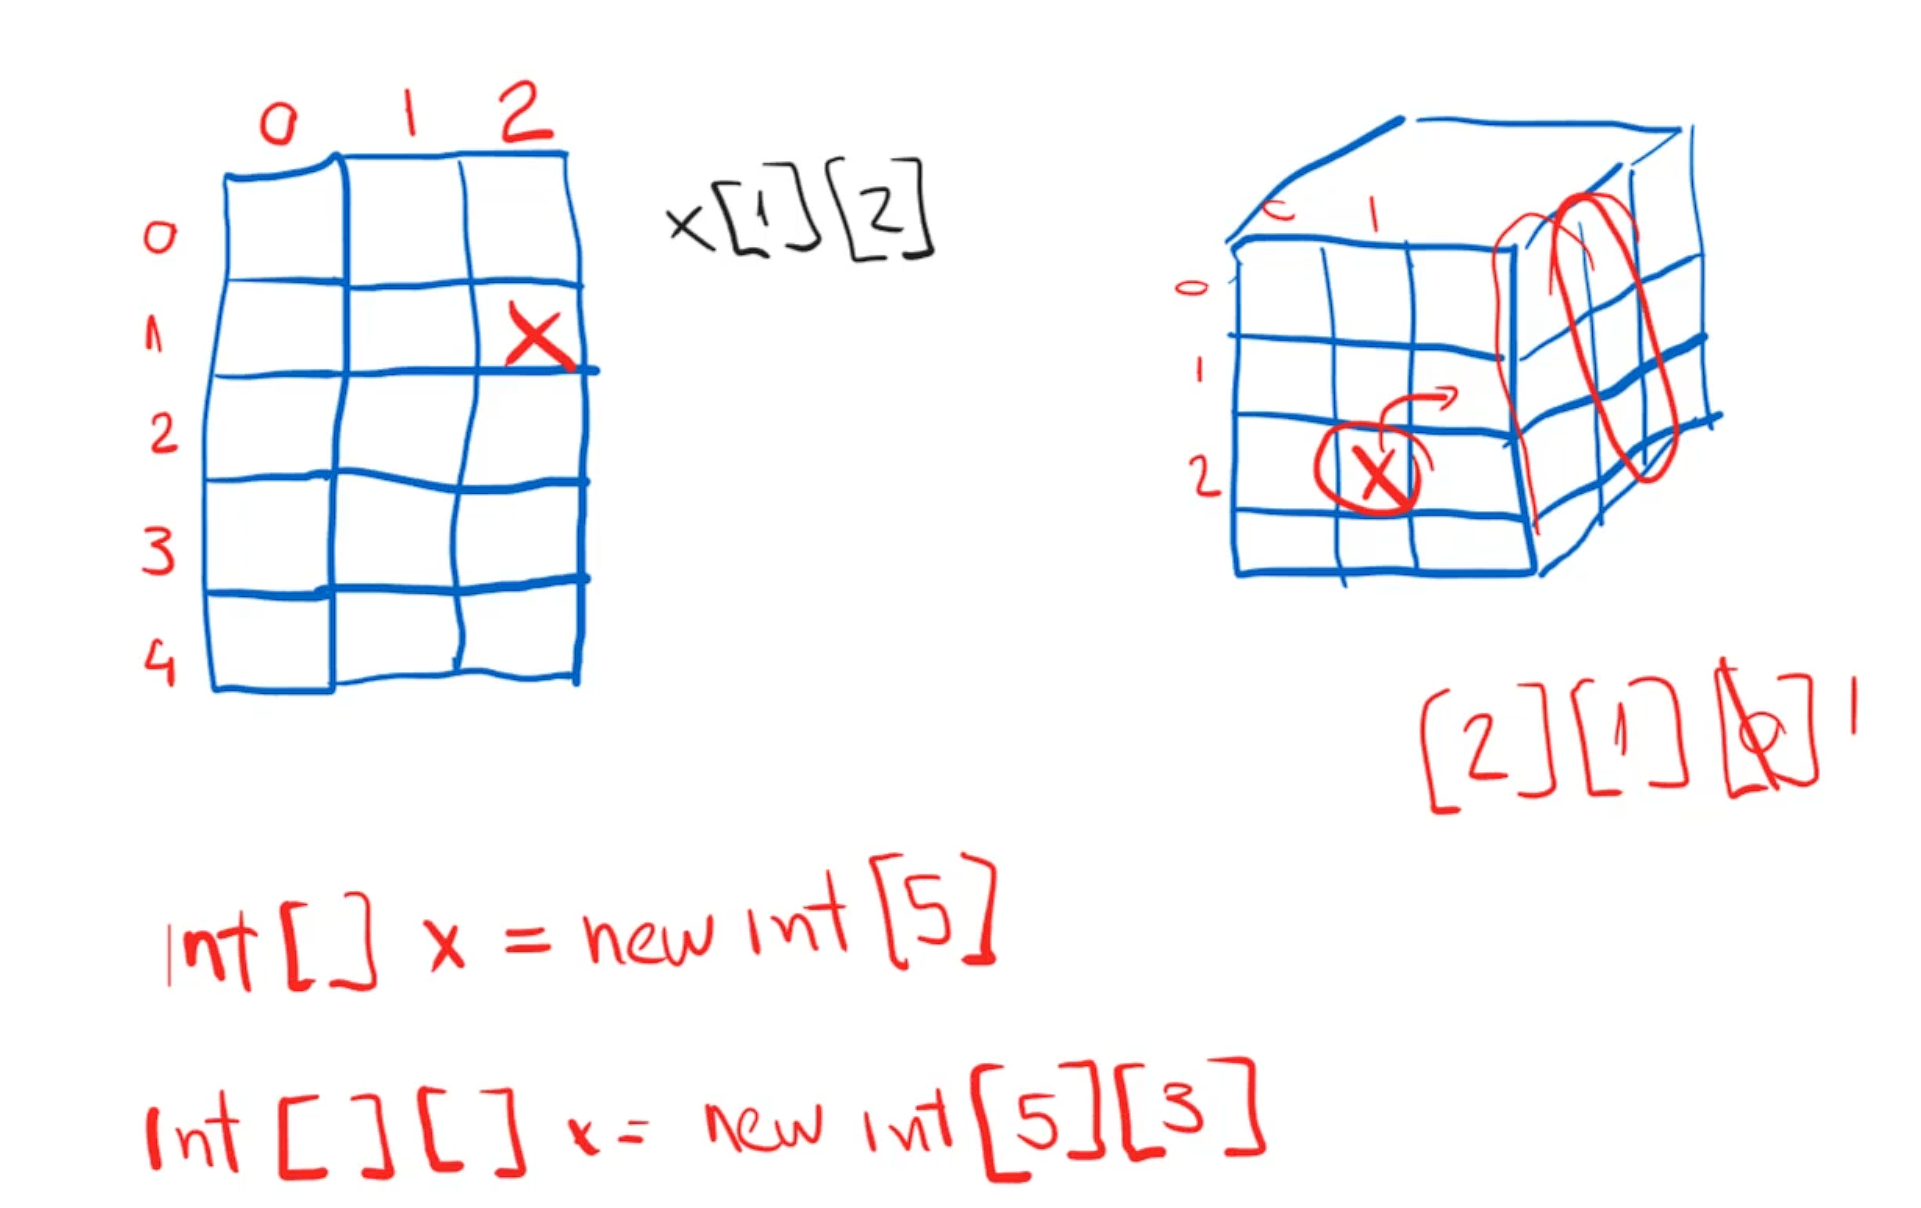 0 1 2
0
1
2
3
4
X
x[1][2]
1
0
1
2
X
[2][1][0] 1
int[] x = new int[5]
Int[][] x = new int[5][3]